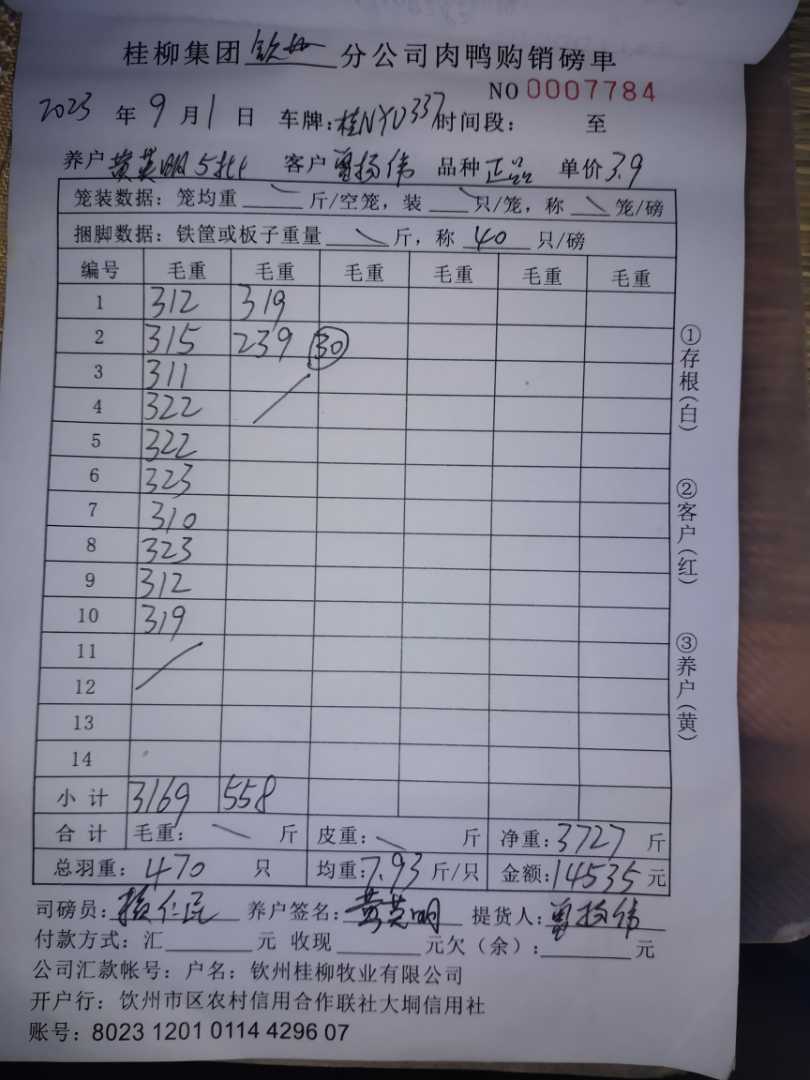 桂柳集团钦州分公司肉鸭购销磅单
NO 0007784
2023年9月1日 车牌:桂NYU337 时间段: 至
养户黄英明5批 客户曾扬伟 品种正品 单价3.9
笼装数据: 笼均重 斤/空笼, 装 只/笼, 称 笼/磅
捆脚数据: 铁筐或板子重量 斤, 称 40 只/磅
编号 毛重 毛重 毛重 毛重 毛重 毛重
1 312 319
2 315 239 30
3 311
4 322
5 322
6 323
7 310
8 323
9 312
10 319
11
12
13
14
小计 3169 558
合计 毛重: 斤 皮重: 斤 净重:3727斤
总羽重: 470 只 均重:7.93斤/只 金额:14535元
司磅员: 仁民 养户签名: 黄英明 提货人: 曾扬伟
付款方式: 汇 元 收现 元欠(余): 元
公司汇款帐号: 户名: 钦州桂柳牧业有限公司
开户行: 钦州市区农村信用合作联社大垌信用社
账号: 8023 1201 0114 4296 07
①存根(白)
②客户(红)
③养户(黄)